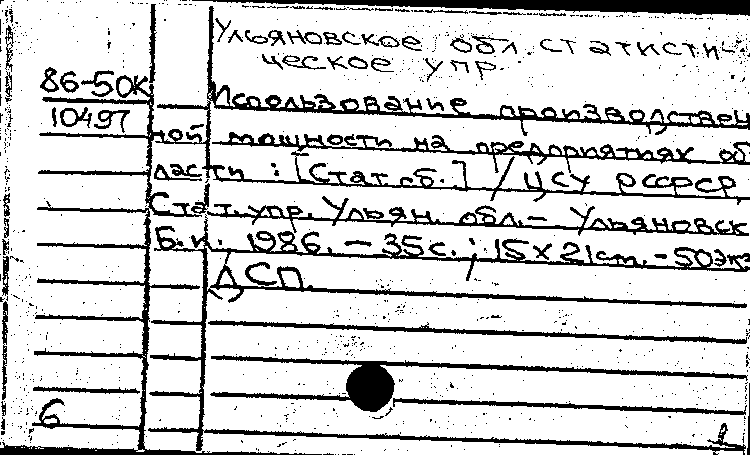 Ульяновское обл. статисти-
ческое упр.
86-50К
Использование производствен
10497
ной мощности на предприятиях об
ласти : [Стат. сб.] / ЦСУ РСФСР,
Стат. упр. Ульян. обл. - Ульяновск
Б.и., 1986. - 35 с. ; 15 х 21 см. - 50 экз
ДСП.
6